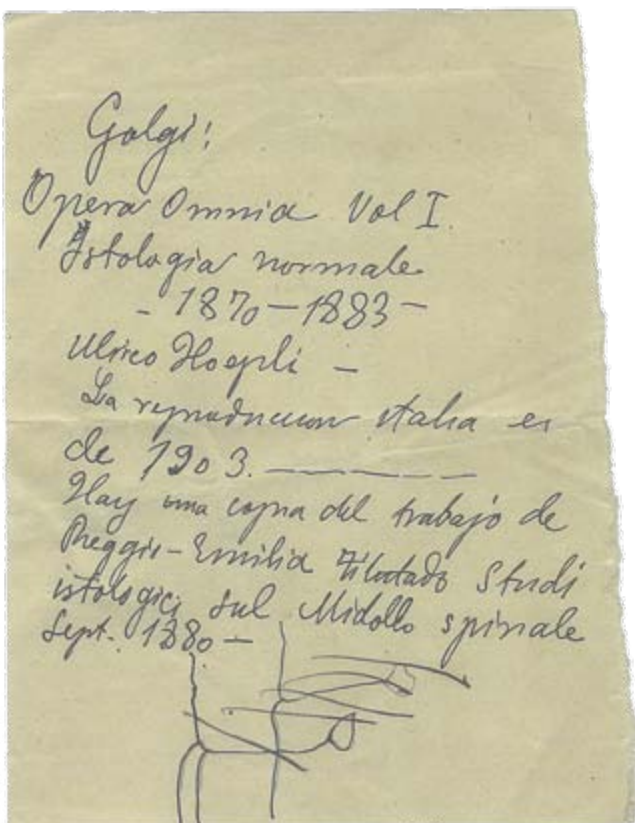 Golgi!
Opera Omnia Vol I.
Istologia normale
- 1870-1883 -
Ulrico Hoepli -
La reproduccion italia es
de 1903. ————
Hay una copia del trabajo de
Reggio-Emilia titulado Studi
istologici sul Midollo spinale
Sept. 1880 -